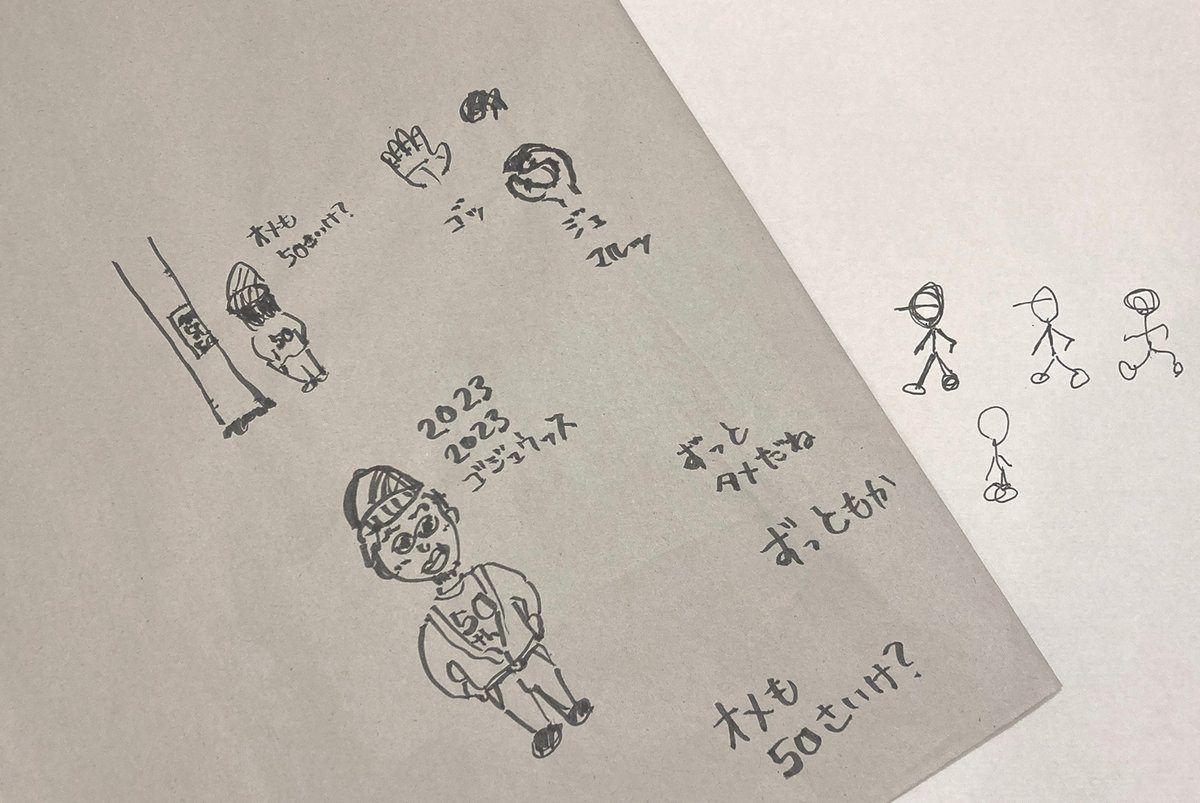 オメも
50さいけ?
ゴッ
ジュ
50
2023
2023
ゴジュウッス
50
ずっと
タメだね
ずっともか
オメも
50さいけ?